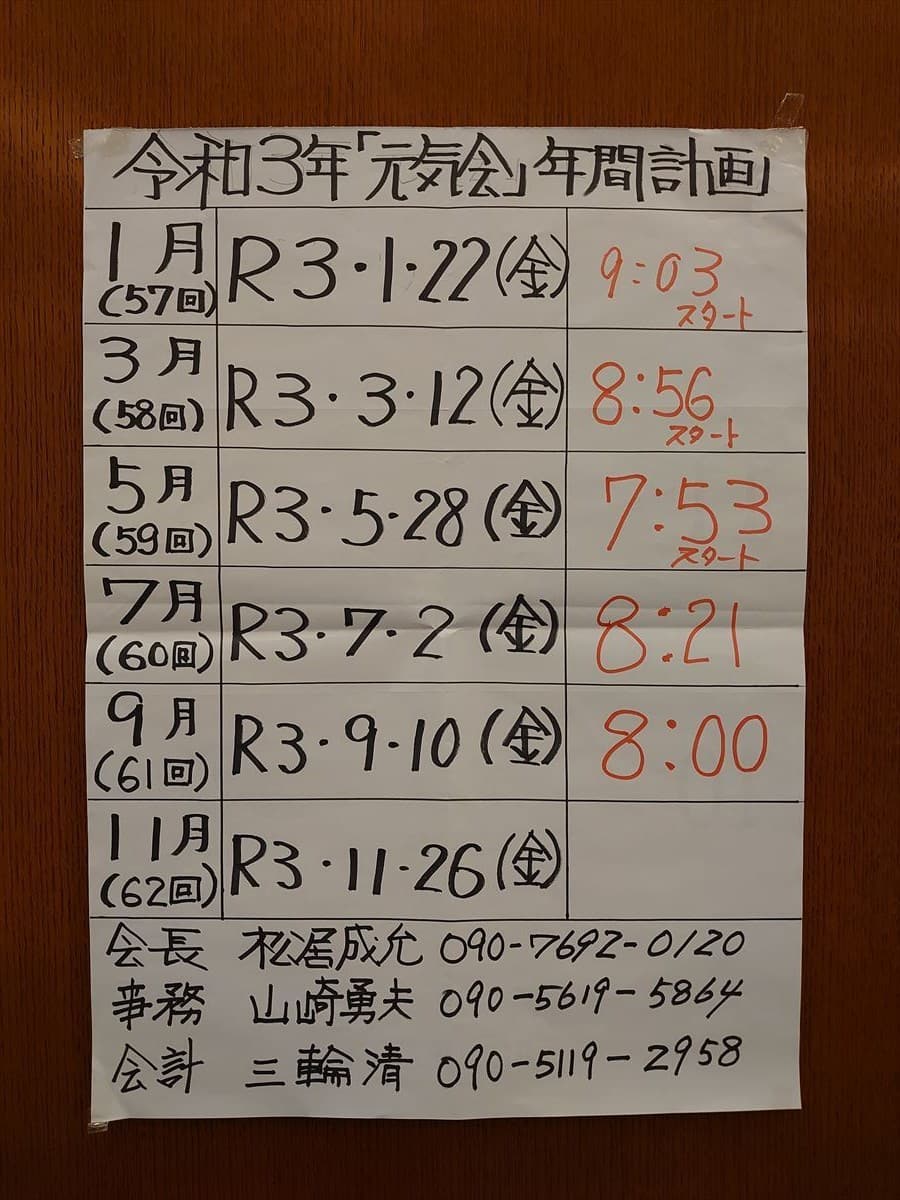 令和3年「元気会」年間計画
1月 R3・1・22(金) 9:03
(57回) スタート
3月 R3・3・12(金) 8:56
(58回) スタート
5月 R3・5・28(金) 7:53
(59回) スタート
7月 R3・7・2(金) 8:21
(60回)
9月 R3・9・10(金) 8:00
(61回)
11月 R3・11・26(金)
(62回)
会長 松居成允 090-7692-0120
事務 山崎勇夫 090-5619-5864
会計 三輪清 090-5119-2958